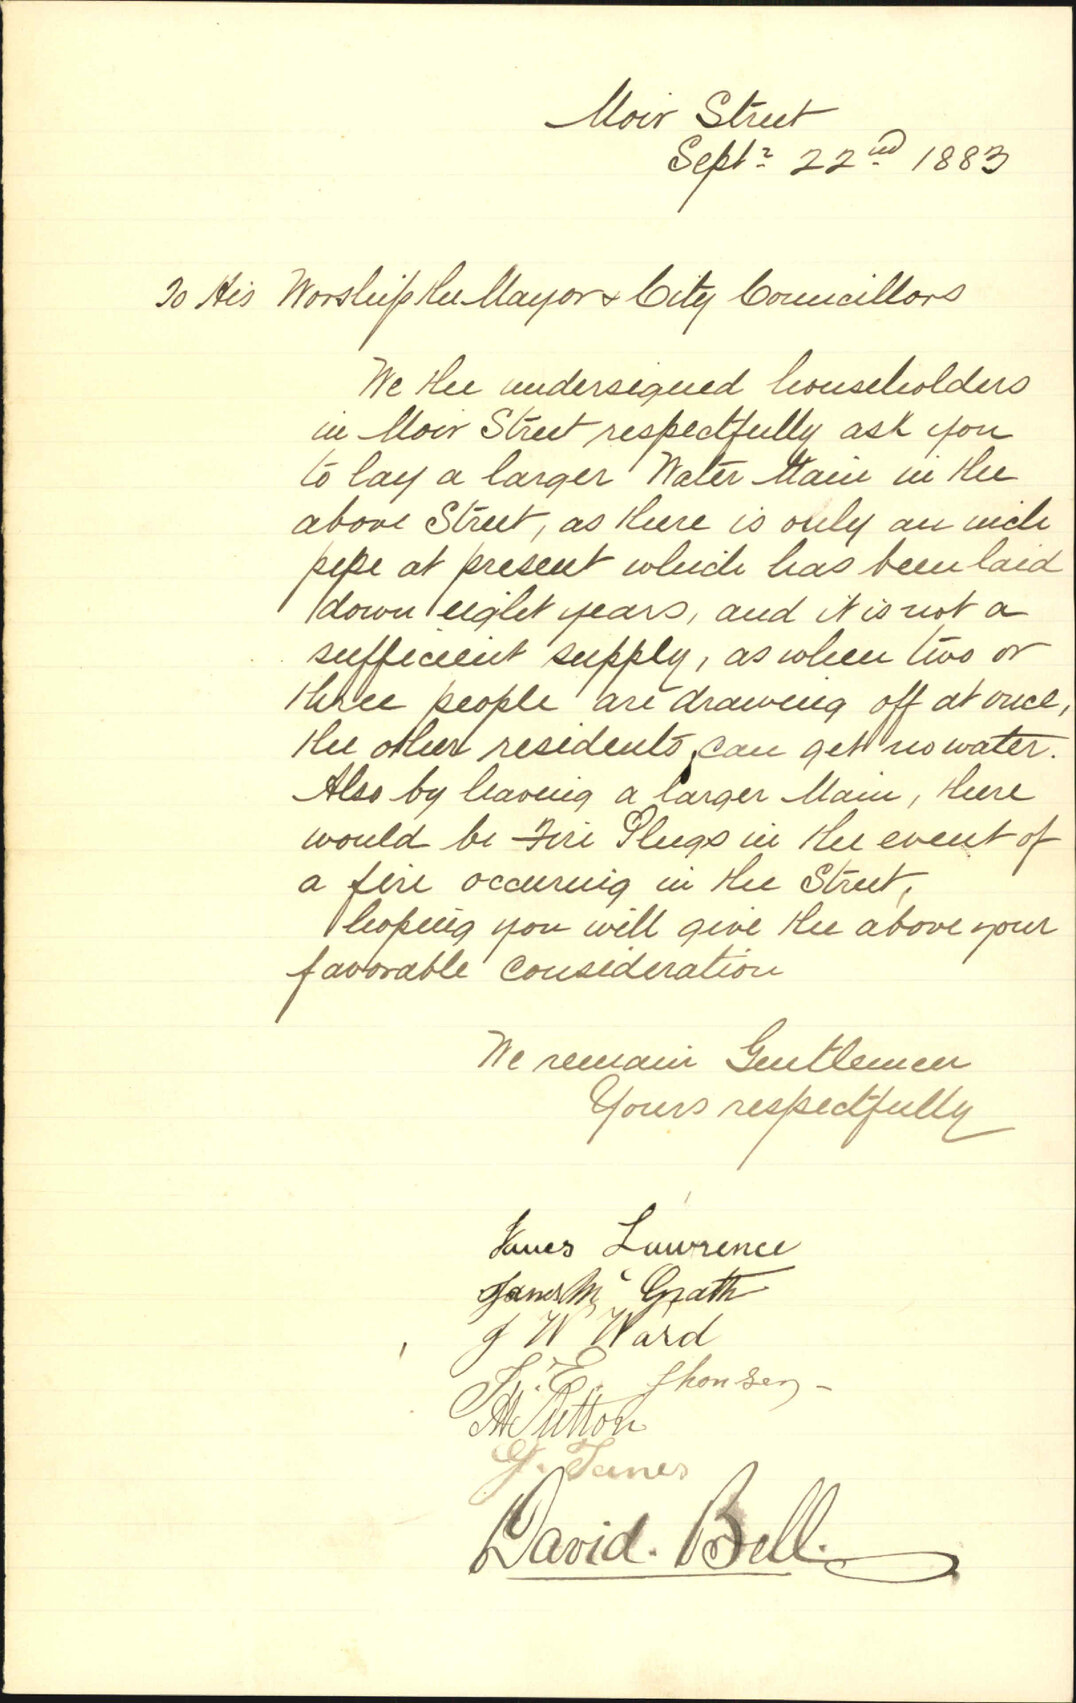 Moir Street
Septr 22nd 1883
To His Worship the Mayor & City Councillors
We the undersigned householders
in Moir Street respectfully ask you
to lay a larger Water Main in the
above Street, as there is only an inch
pipe at present which has been laid
down eight years, and it is not a
sufficient supply, as when two or
three people are drawing off at once,
the other residents can get no water.
Also by having a larger Main, there
would be Fire Plugs in the event of
a fire occuring in the Street,
hoping you will give the above your
favorable consideration
We remain Gentlemen
Yours respectfully
James Lawrence
James McGrath
J W Ward
J. E. Jhonsen
Sutton
G. James
David. Bell.